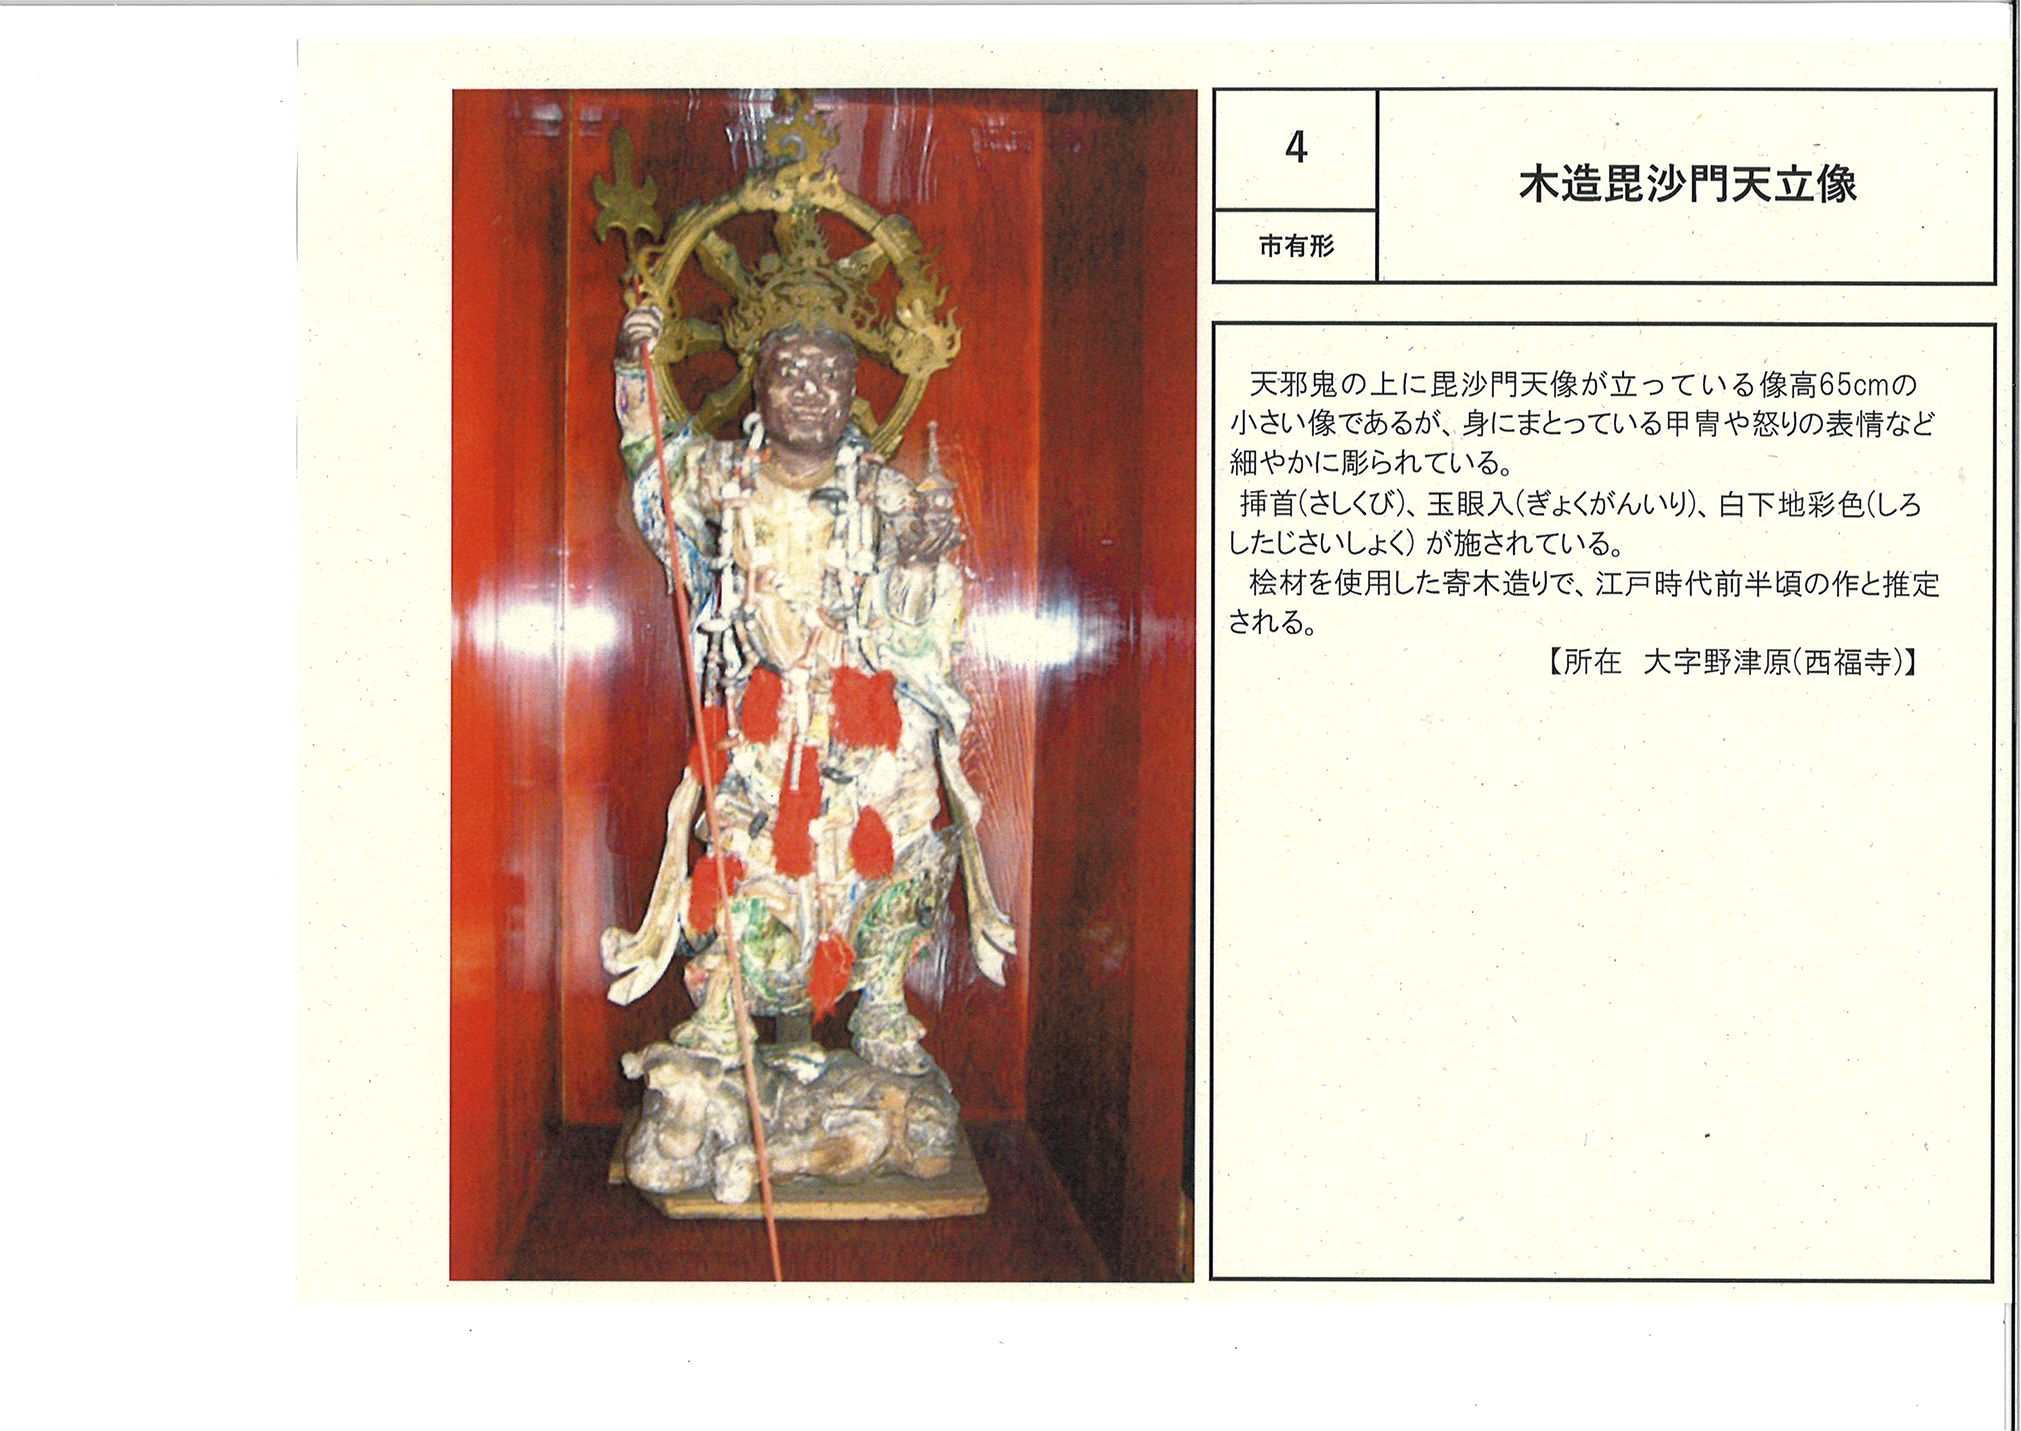 4
木造毘沙門天立像
市有形
天邪鬼の上に毘沙門天像が立っている像高65cmの
小さい像であるが、身にまとっている甲冑や怒りの表情など
細やかに彫られている。
挿首(さしくび)、玉眼入(ぎょくがんいり)、白下地彩色(しろ
したじさいしょく) が施されている。
桧材を使用した寄木造りで、江戸時代前半頃の作と推定
される。
【所在　大字野津原(西福寺)】